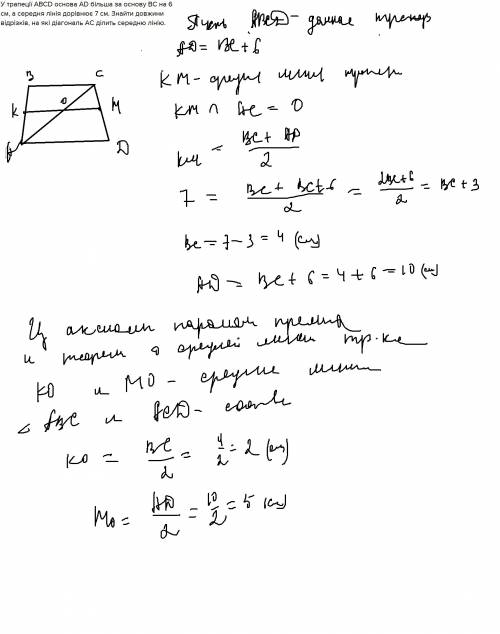 У трапеції ABCD основа AD більша за основу BC на 6
см, а середня лінія дорівнює 7 см. Знайти довжини
відрізків, на які діагональ AC ділить середню лінію.
Пусть ABCD - данная
AD = BC + 6
B C
K O M
A D
KM - средн линия
KM ∩ AC = O
KM = \frac{BC + AD}{2}
7 = \frac{BC + BC + 6}{2} = \frac{2BC + 6}{2} = BC + 3
BC = 7 - 3 = 4 (см)
AD = BC + 6 = 4 + 6 = 10 (см)
Из аксиомы паралл прямых
и теорем о средней линии тр-ка
KO и MO - средние линии
△ ABC и ACD - соотв
KO = \frac{BC}{2} = \frac{4}{2} = 2 (см)
MO = \frac{AD}{2} = \frac{10}{2} = 5 (см)